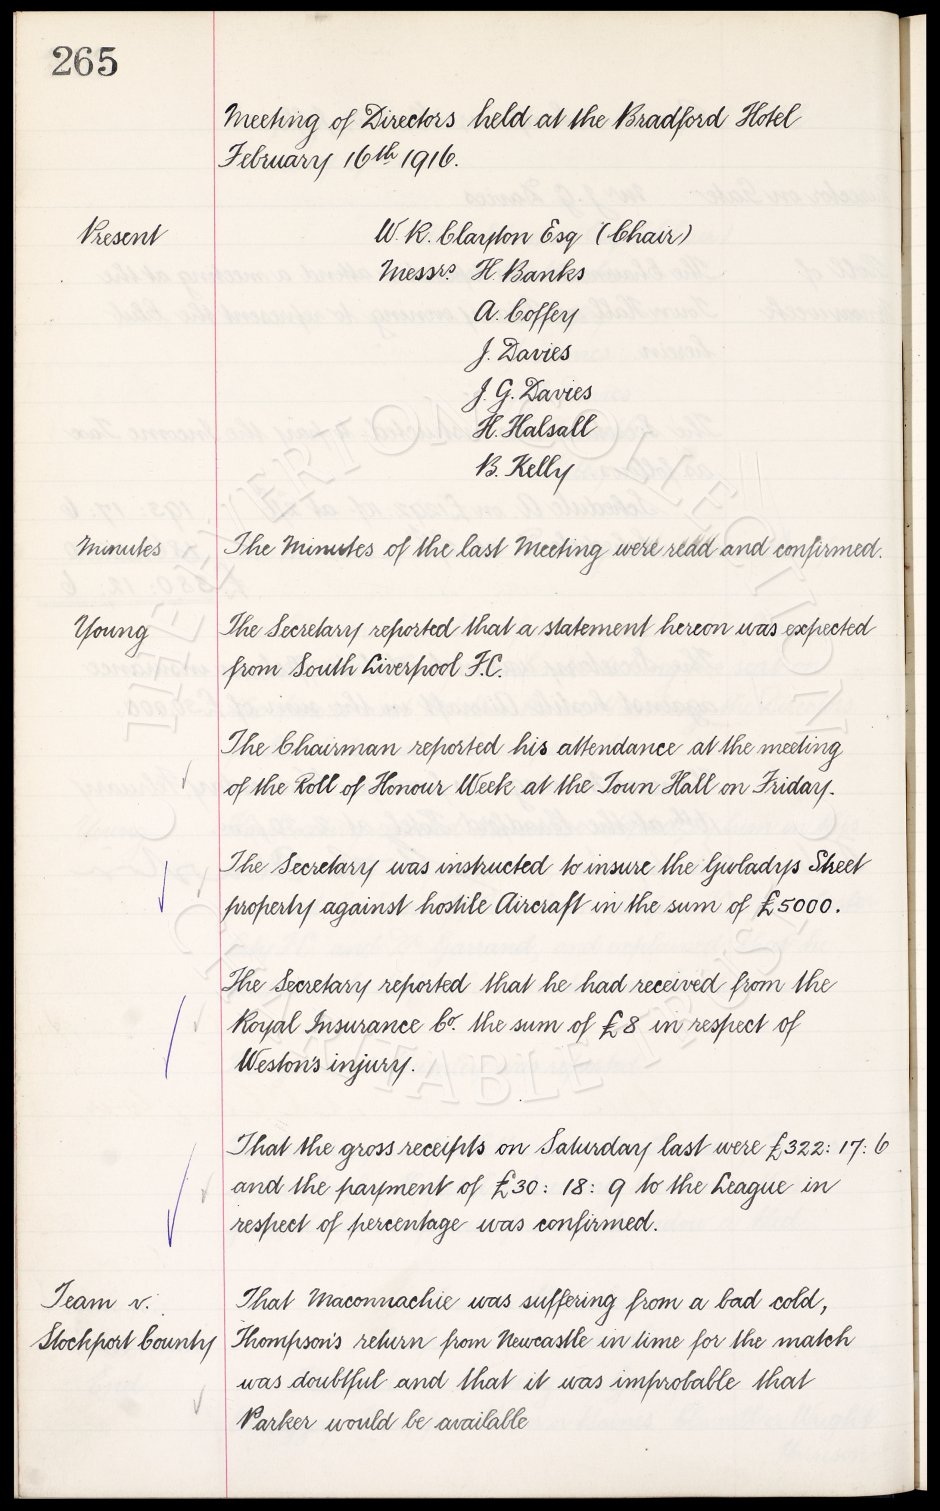 265
Meeting of Directors held at the Bradford Hotel
February 16th 1916.
Present
W. R. Clayton Esq (Chair)
Messrs H. Banks
A. Coffey
J. Davies
J. G. Davies
H. Halsall
B. Kelly
Minutes
The Minutes of the last Meeting were read and confirmed.
Young
The Secretary reported that a statement hereon was expected
from South Liverpool F.C.
The Chairman reported his attendance at the meeting
of the Roll of Honour Week at the Town Hall on Friday.
The Secretary was instructed to insure the Gwladys Street
property against hostile Aircraft in the sum of £5000.
The Secretary reported that he had received from the
Royal Insurance Co. the sum of £8 in respect of
Weston's injury.
That the gross receipts on Saturday last were £322: 17: 6
and the payment of £30: 18: 9 to the League in
respect of percentage was confirmed.
Team v.
Stockport County
That Maconnachie was suffering from a bad cold,
Thompson's return from Newcastle in time for the match
was doubtful and that it was improbable that
Parker would be available
THE EVERTON COLLECTION
CHARITABLE TRUST